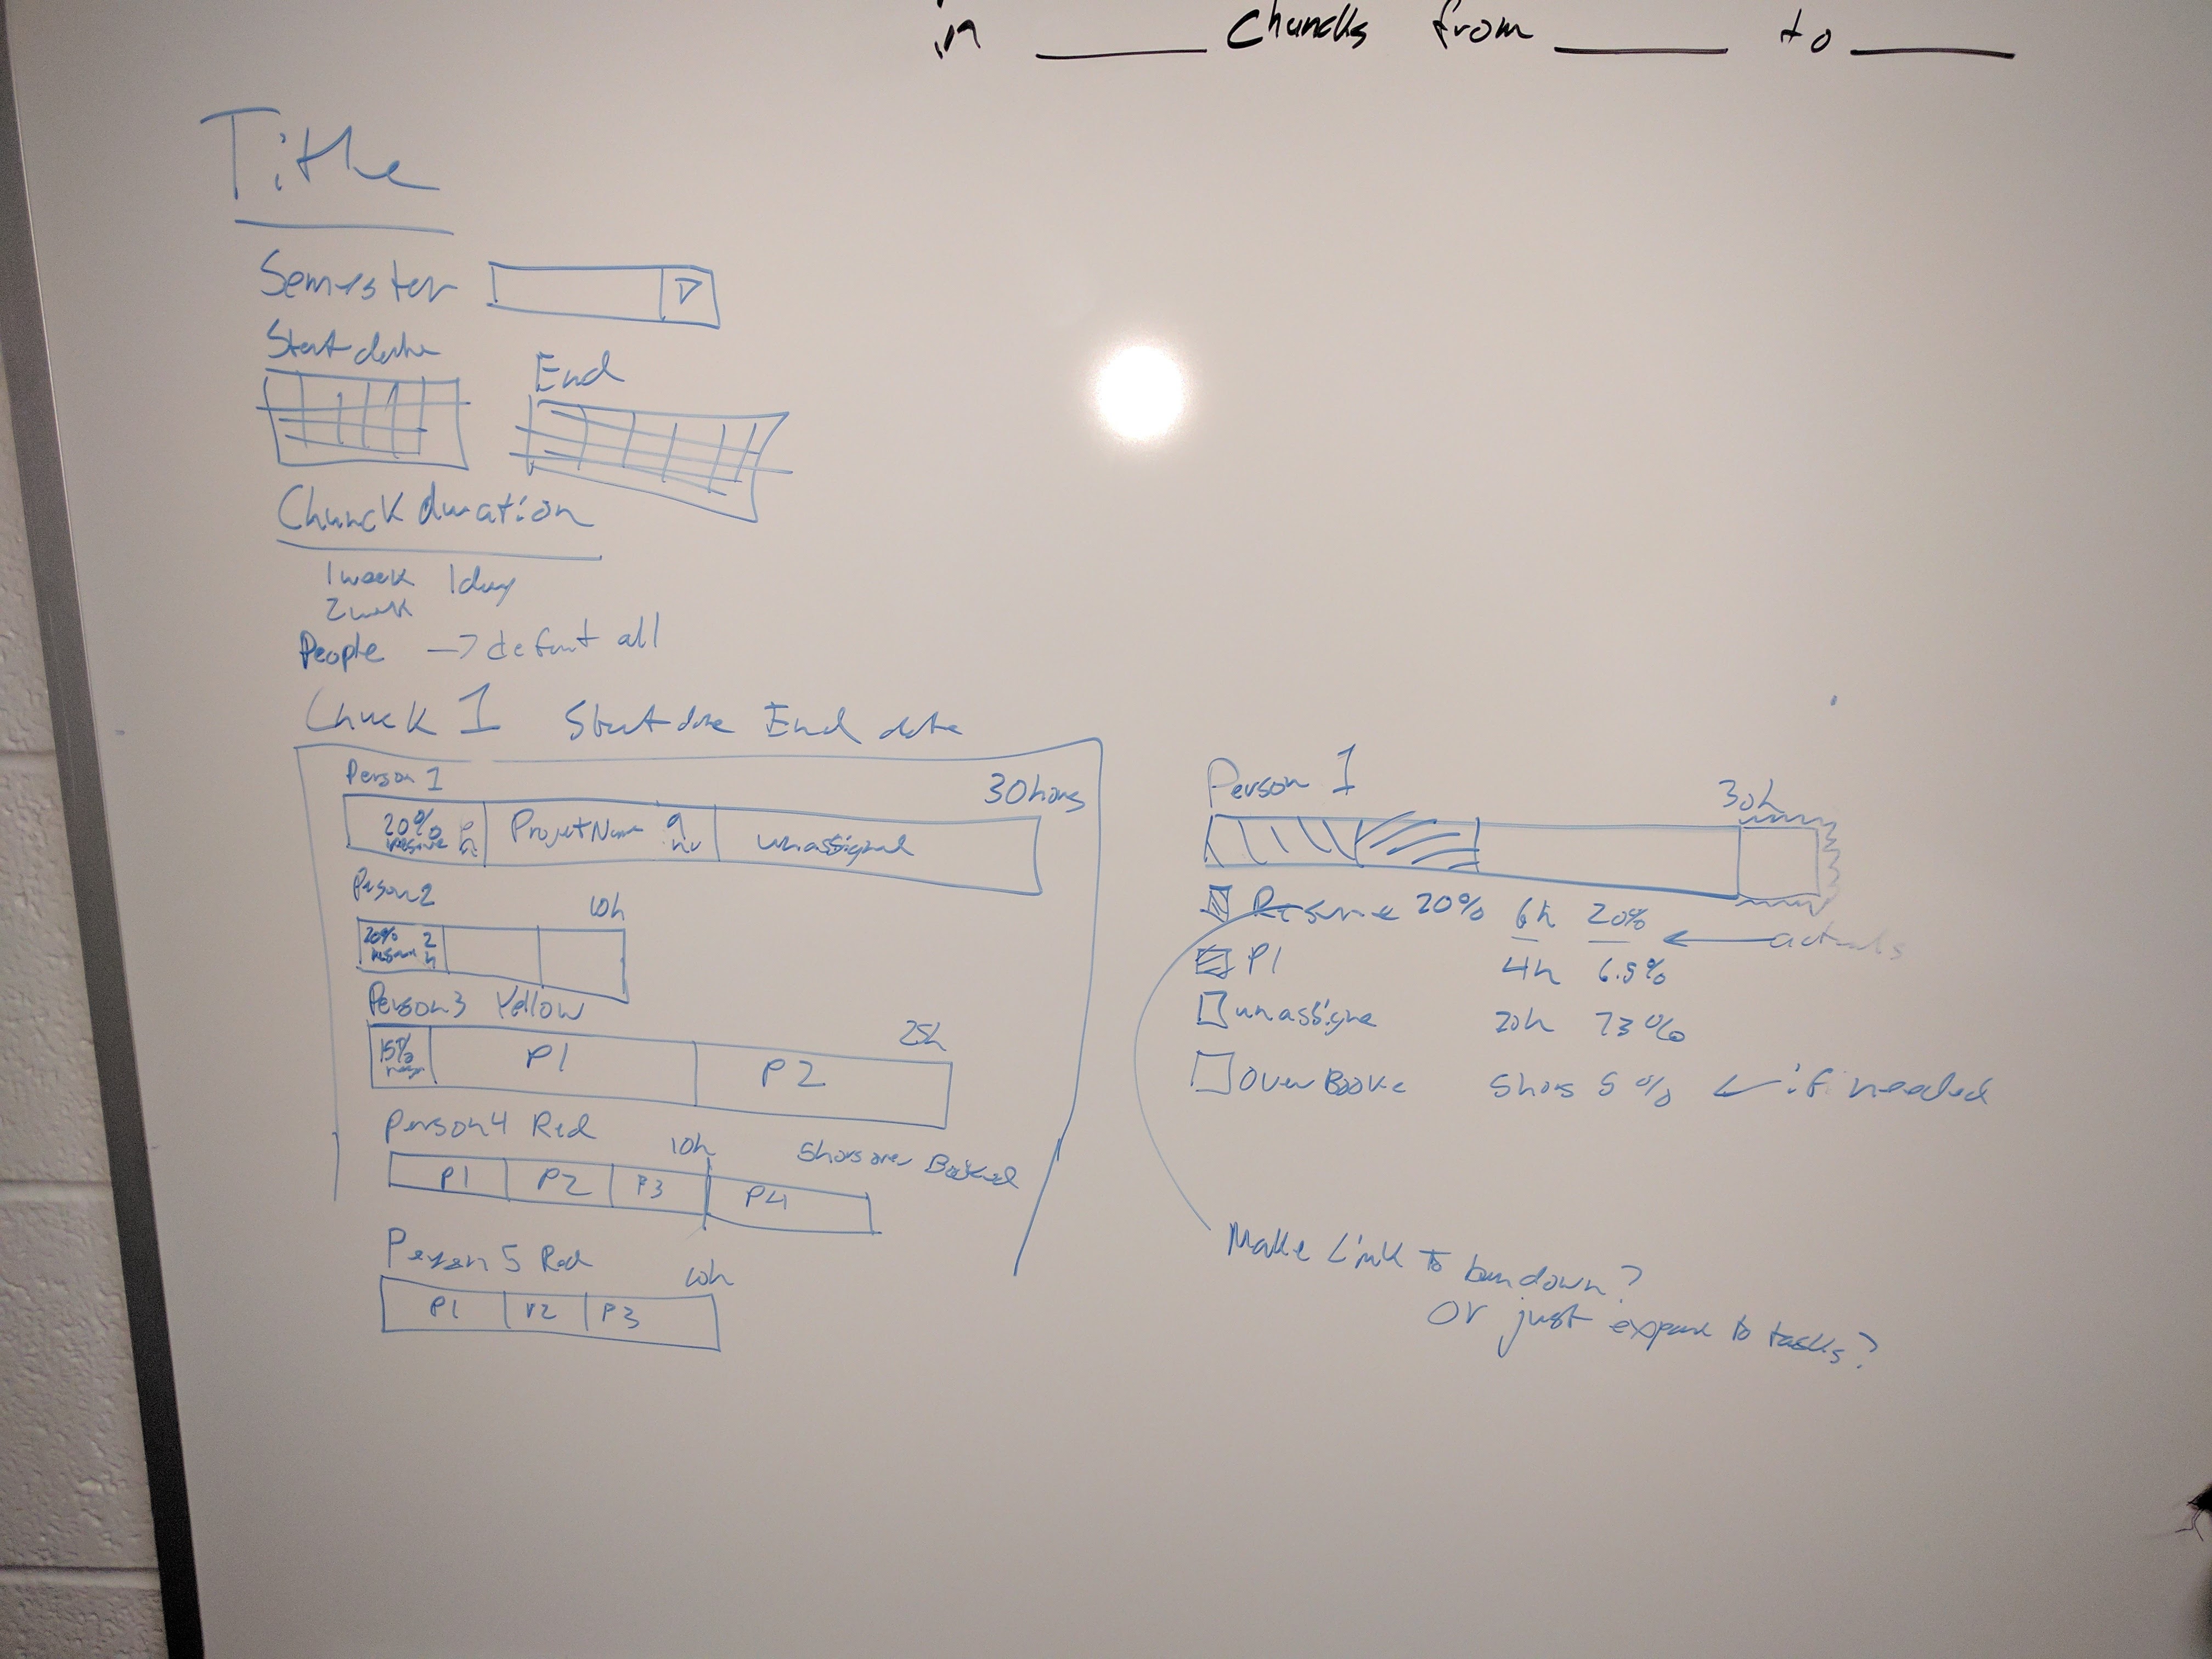 in ____ Chuncks from ____ to ____
Title
Semester
Start date
End
Chunck duration
1 week 1 day
2 week
People -> defant all
Chuck 1 Start date End date
Person 1 30 hours
20% Project Name 9 unassigned
Person 2 10h
20% 2
h
Person 3 Yellow 25h
15% P1 P2
Person 4 Red 10h 5 hors over Booked
P1 P2 P3 P4
Person 5 Red 10h
P1 P2 P3
Person 1 30h
Reserve 20% 6h 20% <- actuals
P1 4h 6.5%
unassigne 20h 73%
Over Booke 5 hors 5% <- if needed
Make Link to burndown?
Or just expand to tasks?